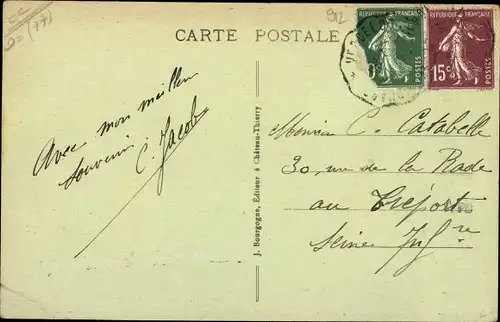 (77)
912
CARTE POSTALE
RÉPUBLIQUE FRANÇAISE
POSTES
RÉPUBLIQUE FRANÇAISE
15c
POSTES
Avec mon meilleur
souvenir.
C. Jacob
J. Bourgogne, Éditeur à Château-Thierry
Monsieur C. Catabelle
30, rue de la Rade
au Tréport
Seine Infre